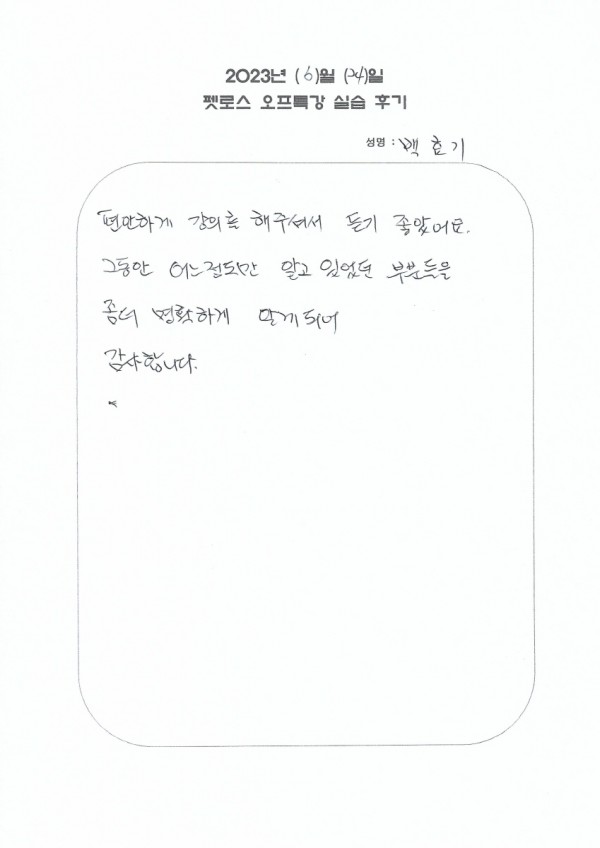 2023년 (6)월 (24)일
펫로스 오프특강 실습 후기
성명 : 백효기
편안하게 강의를 해주셔서 듣기 좋았어요.
그동안 어느정도만 알고 있었던 부분들을
좀더 명확하게 알게되어
감사합니다.